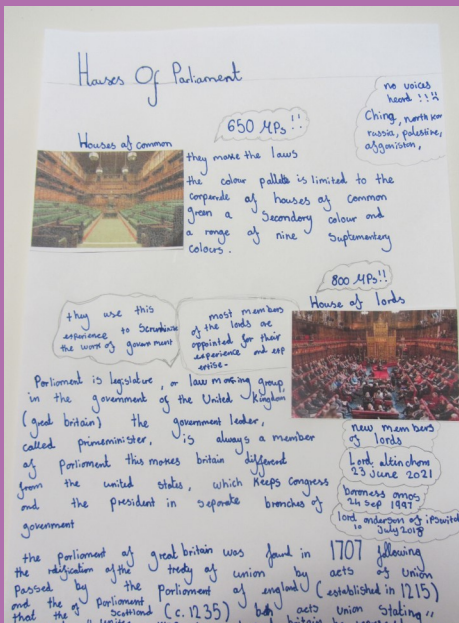 Houses Of Parliament
no voices
heard !!!
Ching, north kor
russia, palestine,
afganistan,
650 MPs!!
Houses of common
they make the laws
the colour pallete is limited to the
corpende of houses of common
green a Secondory colour and
a range of nine Suplementery
colours.
800 MPs!!
House of lords
they use this
experience to Scrutinise
the work of government
most members
of the lords are
appointed for their
experience and exp
ertise.
Parliament is legislature, or law making group,
in the government of the United Kingdom
(great britain) the government leader,
called primeminister, is always a member
of Parliament this makes britain different
from the united states, which keeps congress
and the president in seperate branches of
government
new members
of lords
Lord altrincham
23 June 2021
baroness amos
24 sep 1997
lord anderson of ipswitch
10 July 2018
the Parliament of great britain was found in 1707 following
the radification of the treaty of union by acts of Union
Passed by the Parliament of england (established in 1215)
and the of Parliament Scottland (c.1235) both acts union stating"
that the
britain be